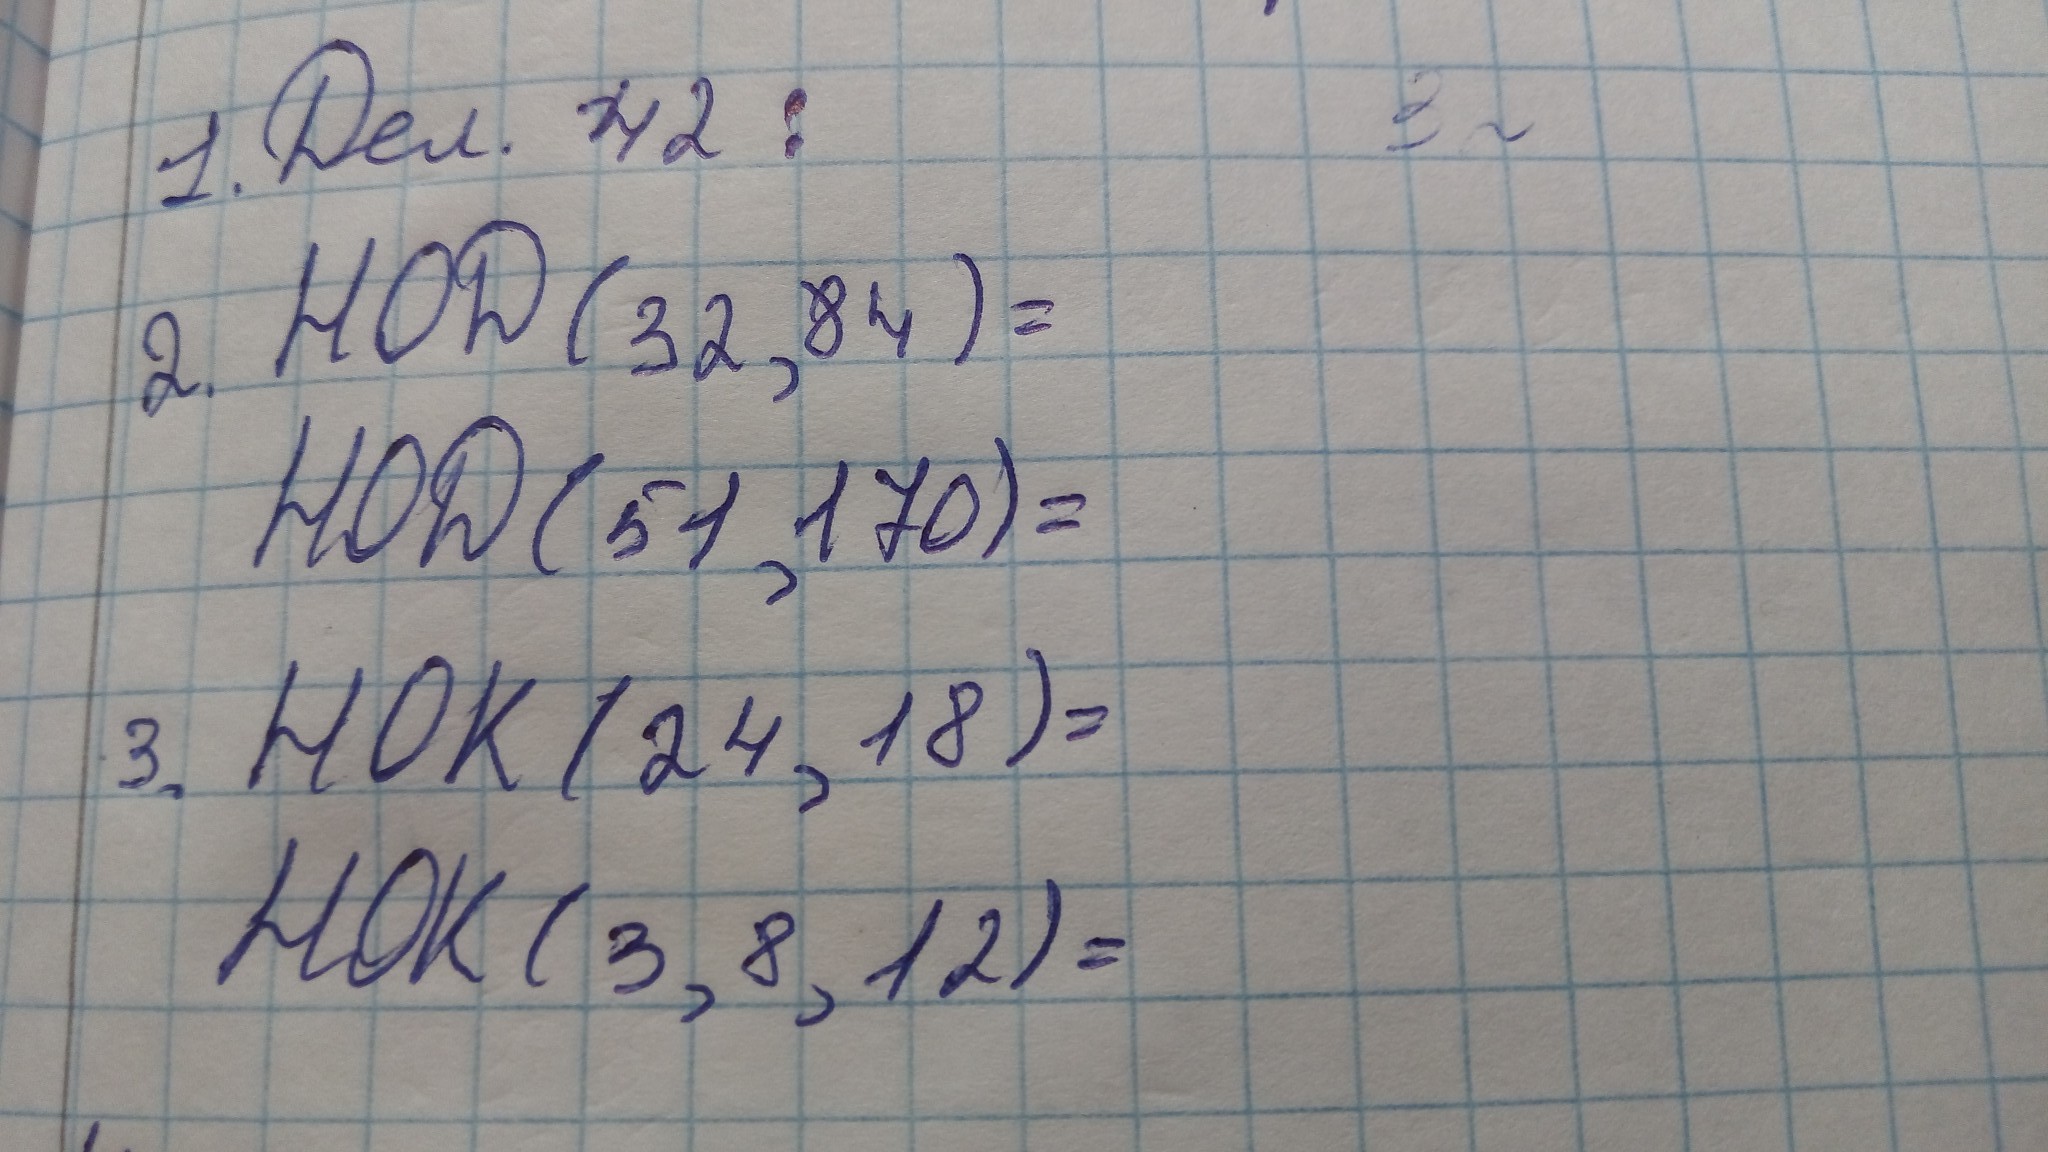 1. Дел. 42 :
2. НОД (32, 84) =
НОД (51, 170) =
3. НОК (24, 18) =
НОК (3, 8, 12) =